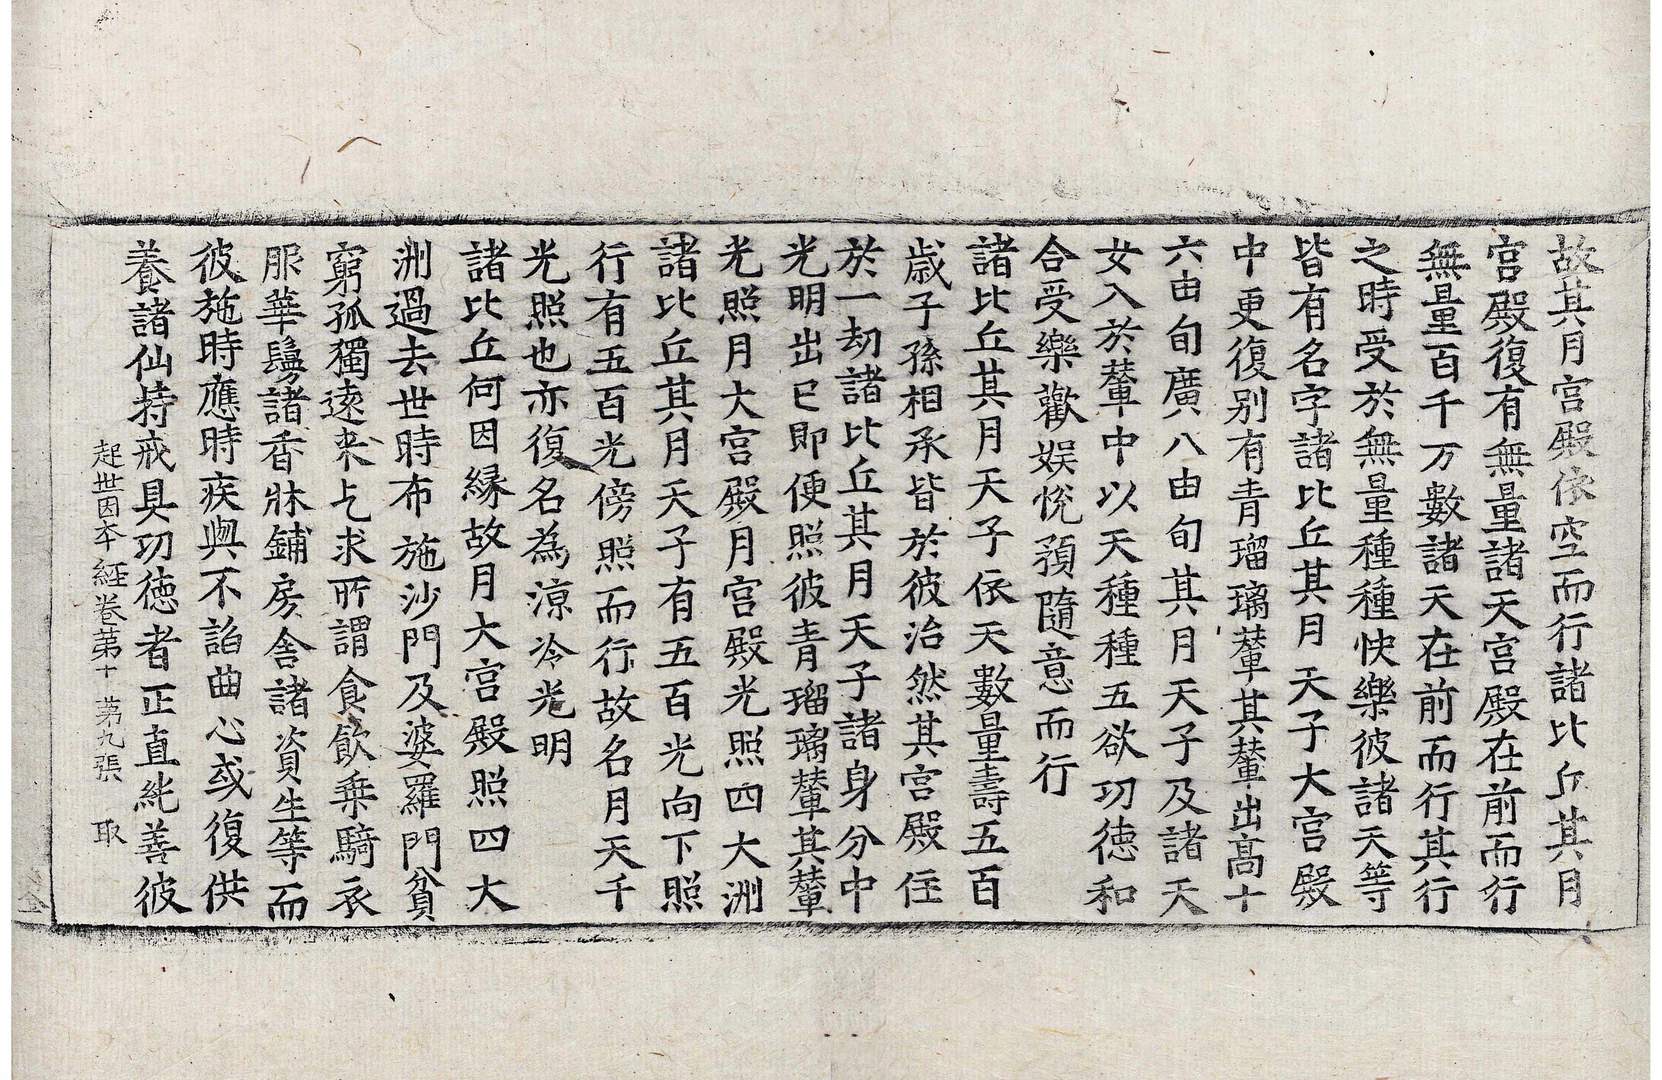 故其月宮殿依空而行諸比丘其月
宮殿復有無量諸天宮殿在前而行
無量百千万數諸天在前而行其行
之時受於無量種種快樂彼諸天等
皆有名字諸比丘其月天子大宮殿
中更復別有青瑠璃輦其輦出高十
六由旬廣八由旬其月天子及諸天
女入於輦中以天種種五欲功德和
合受樂歡娛悅預隨意而行
諸比丘其月天子依天數量壽五百
歲子孫相承皆於彼治然其宮殿住
於一劫諸比丘其月天子諸身分中
光明出已即便照彼青瑠璃輦其輦
光照月大宮殿月宮殿光照四大洲
諸比丘其月天子有五百光向下照
行有五百光傍照而行故名月天千
光照也亦復名為涼冷光明
諸比丘何因緣故月大宮殿照四大
洲過去世時布施沙門及婆羅門貧
窮孤獨遠來乞求所謂食飲乗騎衣
服華鬘諸香牀鋪房舍諸資生等而
彼施時應時疾與不諂曲心或復供
養諸仙持戒具功德者正直純善彼
起世因本經卷第十 第九張 取